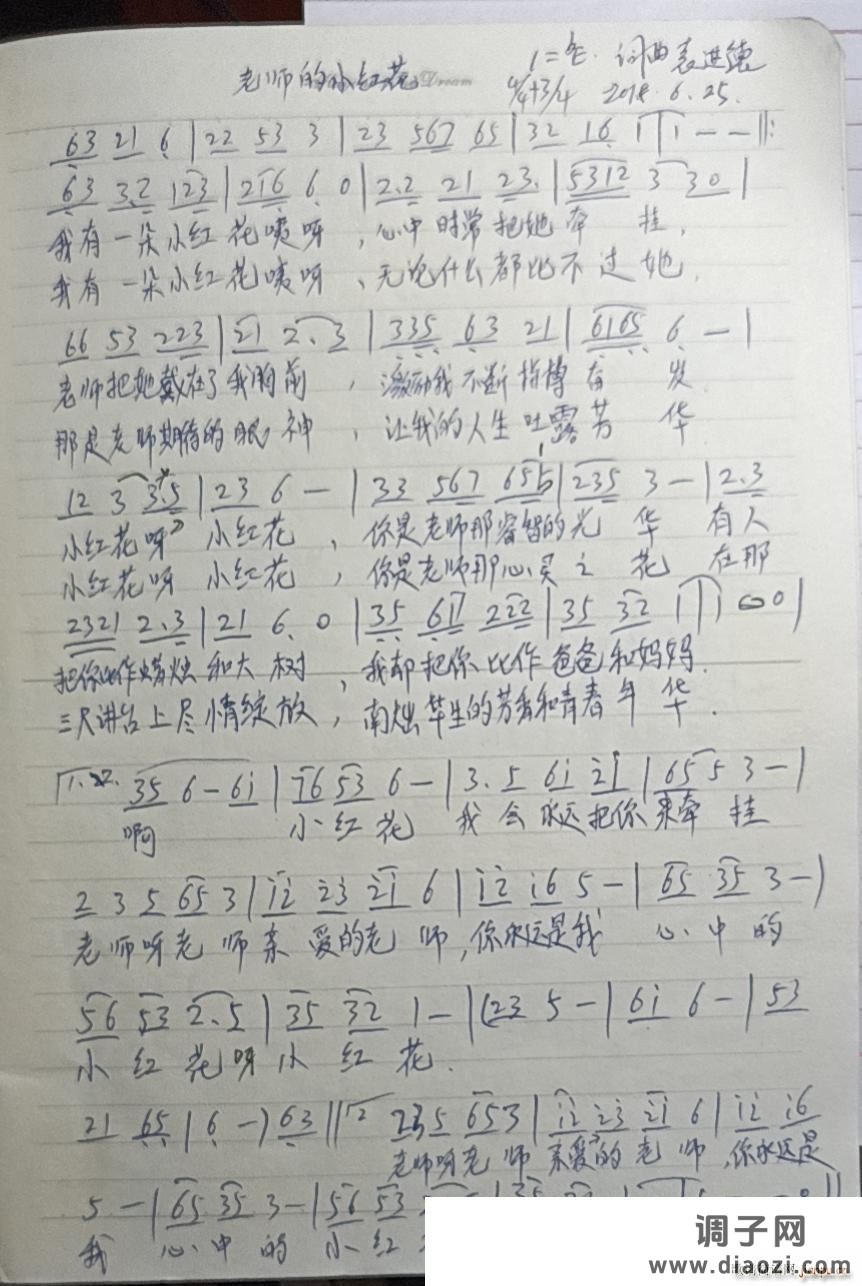 老师的小红花 Dream 1=bE 词曲 袁进德
4/4+3/4 2018.6.25.
63 21 6 | 22 53 3 | 23 567 65 | 32 16 1 | 1 - - ‖:
63 3.2 123 | 216 6 0 | 2.2 21 23. | 5312 3 30 |
我有一朵小红花咦呀,心中时常把她牵挂,
我有一朵小红花咦呀、无论什么都比不过她.
66 53 223 | 21 2.3 | 335 63 21 | 6165 6 - |
老师把她戴在了我胸前,激励我不断 奋发.
那是老师期待的眼神、让我的人生吐露芳华
12 3 3.5 | 23 6 - | 33 567 65 | 235 3 - | 2.3
小红花呀 小红花,你是老师那睿智的光华 有人
小红花呀 小红花,你是老师那心 之花 在那
2321 2.3 | 21 6. 0 | 35 617 222 | 35 32 1 | 1 00 |
把你比作蜡烛和大树,我却把你比作爸爸和妈妈.
三尺讲台上尽情绽放, 毕生的芳香和青春年华.
35 6 - 6i | 76 53 6 - | 3. 5 6i 2i | 65 5 3 - |
啊 小红花 我会永远把你来牵挂
2 3 5 65 3 | i2 23 2i 6 | i2 i6 5 - | 65 35 3 - |
老师呀老师亲爱的老师,你永远是我 心中的
56 53 2.5 | 35 32 1 - | (23 5 - | 6i 6 - | 53
小红花呀小红花.
21 65 | 6 - ) 63 ‖ 2 23 5 653 | i2 23 2i 6 | i2 i6
老师呀老师亲爱的老师,你永远是
5 - | 65 35 3 - | 56 53
我 心中的 小红
调子网
www.diaozi.com